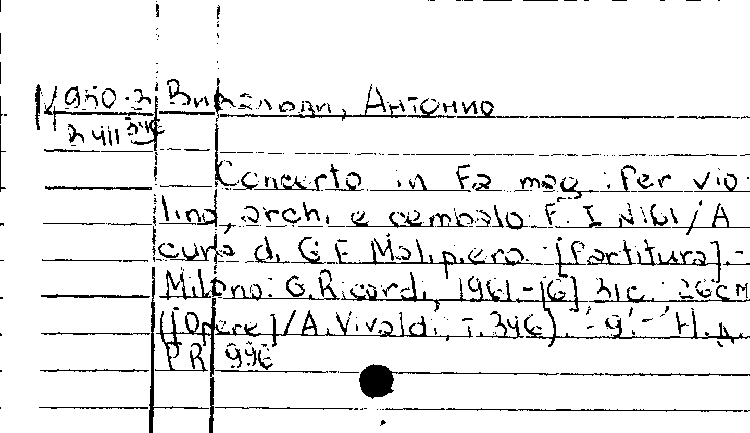 М 950-2 Вивалди, Антонио
2411 346
Concerto in Fa mag. per vio
lino, archi e cembalo F. I N161 / A
cura di G. F. Malipiero [Partitura].-
Milano: G. Ricordi, 1961.-[6] 31 c. 26cm
([Opere] / A. Vivaldi; T. 346). -9.- Н.д.
PR 996